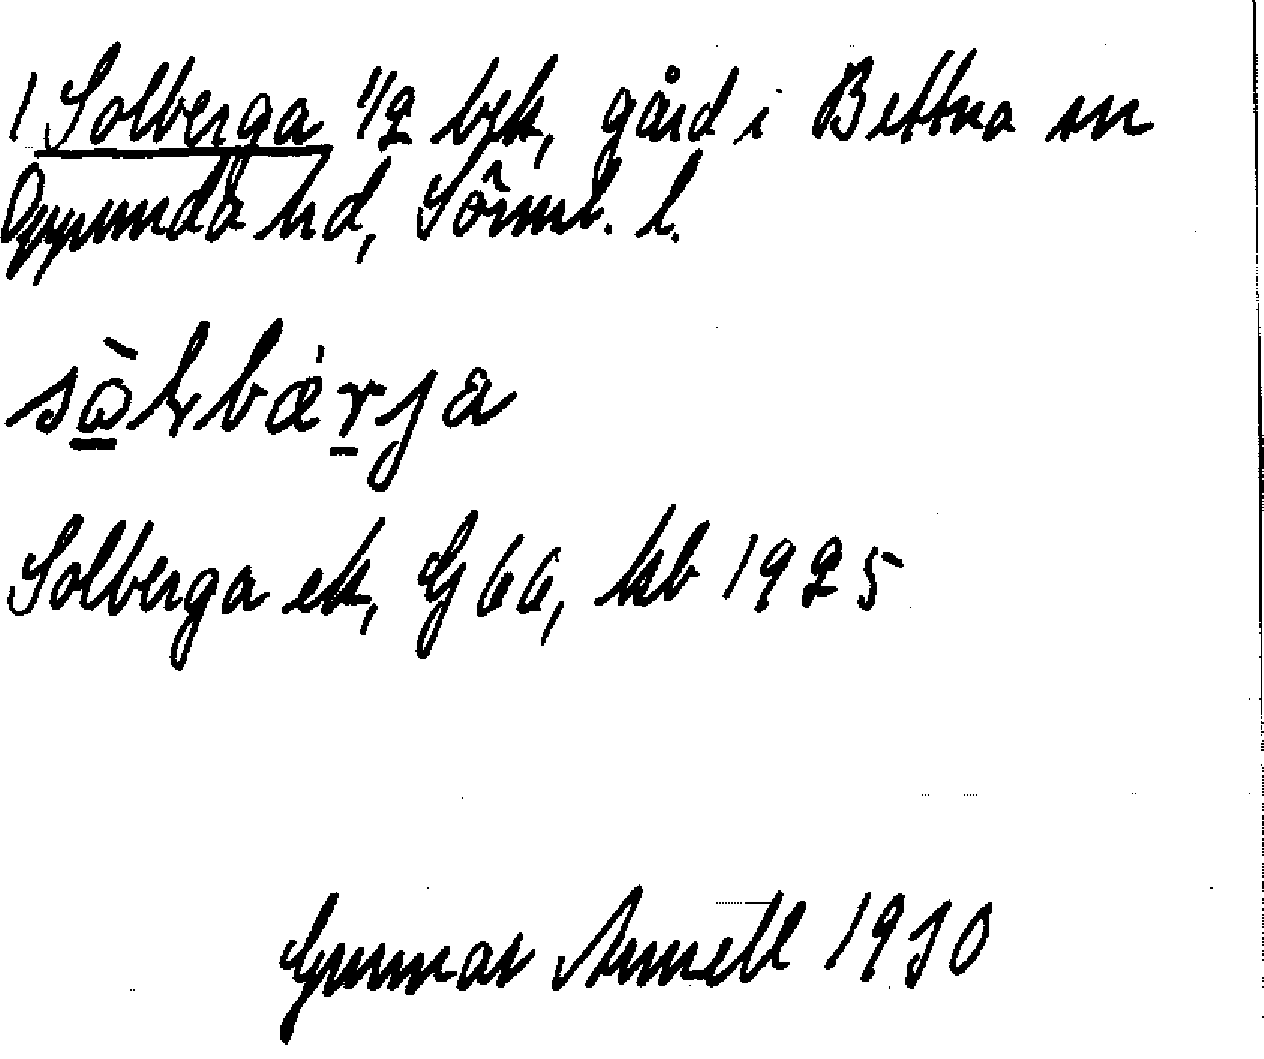 1 Solberga 1/2 bek, gård i Bettna sn
Oppunda hd, Sörml. l.
Solberga ek, G 66, kb 1925
Gunnar Arnell 1930